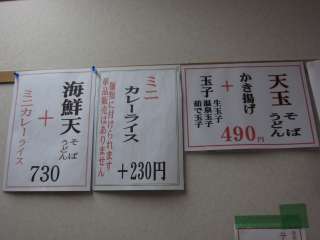 天玉そばうどん
+
かき揚げ
玉子 生玉子 温泉玉子 茹で玉子
490円
ミニ
カレーライス
単品販売はありません
+230円
海鮮天そばうどん
+
ミニカレーライス
730